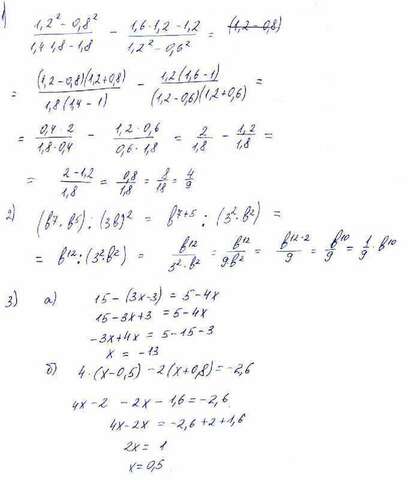 1) (1,2² - 0,8²)/(1,4·1,8 - 1,8) - (1,6·1,2 - 1,2)/(1,2² - 0,6²) =
= ((1,2-0,8)(1,2+0,8))/(1,8(1,4-1)) - (1,2(1,6-1))/((1,2-0,6)(1,2+0,6)) =
= (0,4·2)/(1,8·0,4) - (1,2·0,6)/(0,6·1,8) = 2/1,8 - 1,2/1,8 =
= (2-1,2)/1,8 = 0,8/1,8 = 8/18 = 4/9
2) (в⁷·в⁵):(3в)² = в⁷⁺⁵:(3²·в²) =
= в¹²:(3²·в²) = в¹²/(3²·в²) = в¹²/9в² = в¹²⁻²/9 = в¹⁰/9 = 1/9·в¹⁰
3) а) 15-(3x-3) = 5-4x
15-3x+3 = 5-4x
-3x+4x = 5-15-3
x = -13
б) 4·(x-0,5)-2(x+0,8) = -2,6
4x-2 -2x-1,6 = -2,6
4x-2x = -2,6+2+1,6
2x = 1
x = 0,5